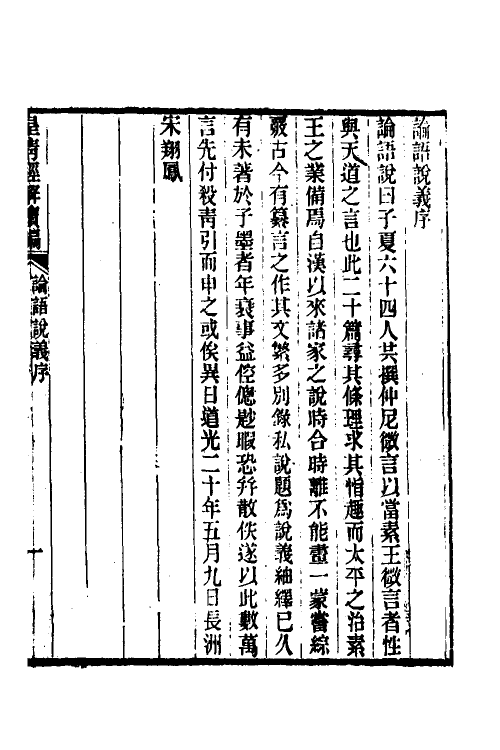 論語說義序
論語說曰子夏六十四人共撰仲尼微言以當素王微言者性
與天道之言也此二十篇尋其條理求其恉趣而太平之治素
王之業備焉自漢以來諸家之說時合時離不能畫一蒙嘗綜
覈古今有纂言之作其文緐多別錄私說題爲說義紬繹已久
有未著於子墨者年衰事益倥傯尟暇恐幷散佚遂以此數萬
言先付殺靑引而申之或俟異日道光二十年五月九日長洲
宋翔鳳
皇清經解續編
論語說義序
一